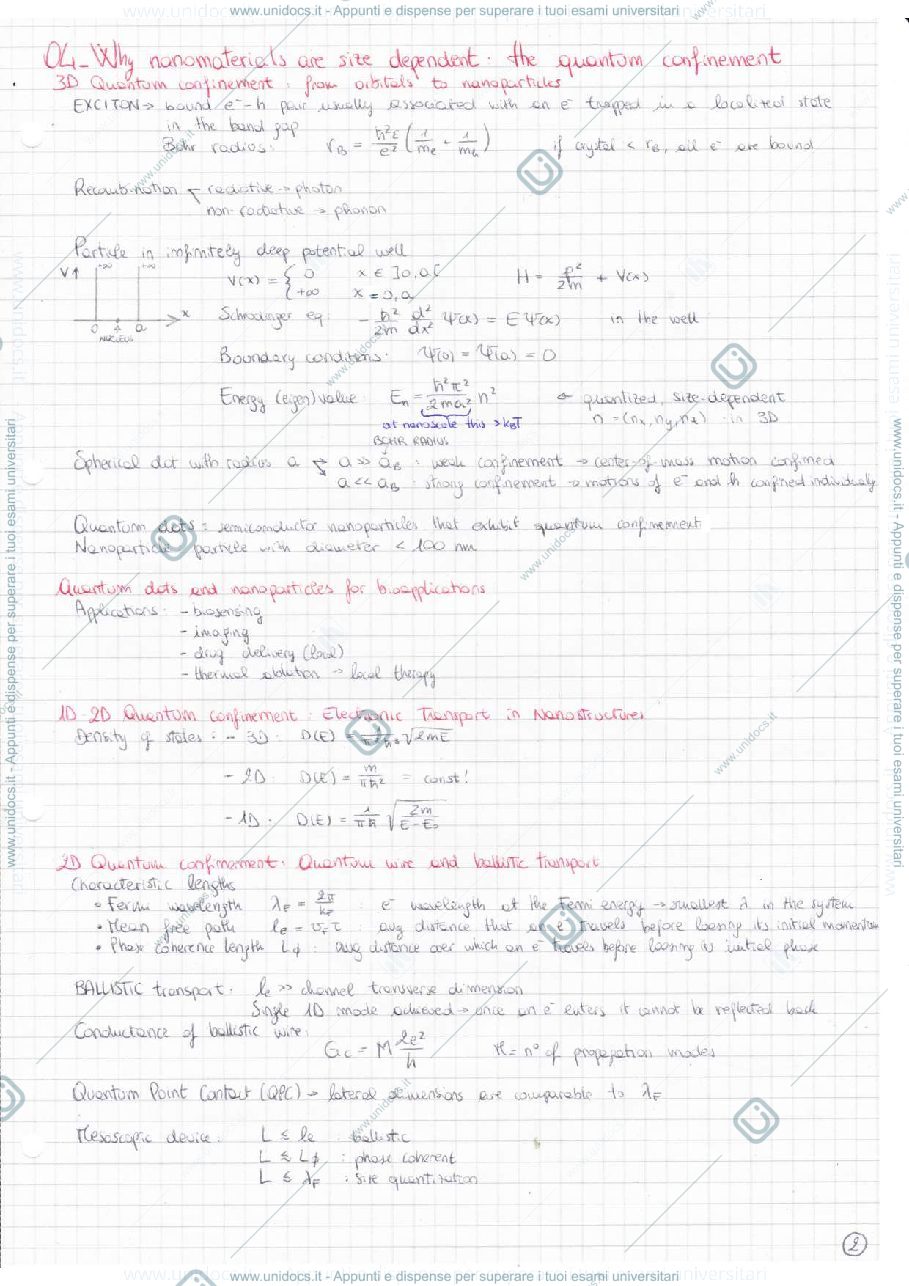 www.unidocs.it - Appunti e dispense per superare i tuoi esami universitari
04_Why nanomaterials are size dependent: the quantum confinement
3D Quantum confinement: from orbitals to nanoparticles
EXCITON → bound e⁻-h pair usually associated with an e⁻ trapped in a localized state
in the band gap
Bohr radius: r_B = ħ²ε/e² (1/m_e + 1/m_h) if crystal < r_B, all e⁻ are bound
Recombination radiative → photon
non-radiative → phonon
Particle in infinitely deep potential well
V↑ +∞ +∞ V(x) = { 0 x ∈ ]0,a[ H = p²/2m + V(x)
+∞ x = 0,a
0 a x Schrodinger eq: -ħ²/2m d²/dx² Ψ(x) = E Ψ(x) in the well
NUCLEUS
Boundary conditions: Ψ(0) = Ψ(a) = 0
Energy (eigen)value: E_n = ħ²π²/2ma² n² quantized, size-dependent
at nanoscale this > k_BT n = (n_x, n_y, n_z) in 3D
BOHR RADIUS
Spherical dot with radius a a >> a_B : weak confinement → center-of-mass motion confined
a << a_B : strong confinement → motions of e⁻ and h confined individually
Quantum dots = semiconductor nanoparticles that exhibit quantum confinement
Nanoparticle particle with diameter < 100 nm
Quantum dots and nanoparticles for bioapplications
Applications: - biosensing
- imaging
- drug delivery (local)
- thermal ablation → local therapy
1D-2D Quantum confinement: Electronic Transport in Nanostructures
Density of states: - 3D: D(E) = √2mE
- 2D: D(E) = m/πħ² = const!
- 1D: D(E) = 1/πħ √2m/E-E₀
2D Quantum confinement: Quantum wire and ballistic transport
Characteristic lengths
• Fermi wavelength λ_F = 2π/k_F : e⁻ wavelength at the Fermi energy → smallest λ in the system
• Mean free path l_e = v_F τ : avg distance that an e⁻ travels before loosing its initial momentum
• Phase coherence length L_ϕ : avg distance over which an e⁻ travels before loosing its initial phase
BALLISTIC transport: l_e >> channel transverse dimension
Single 1D mode achieved → once an e⁻ enters it cannot be reflected back
Conductance of ballistic wire:
G_C = M 2e²/h M = n° of propagation modes
Quantum Point Contact (QPC) → lateral dimensions are comparable to λ_F
Mesoscopic device: L ≲ l_e : ballistic
L ≲ L_ϕ : phase coherent
L ≲ λ_F : size quantization
2
www.unidocs.it - Appunti e dispense per superare i tuoi esami universitari